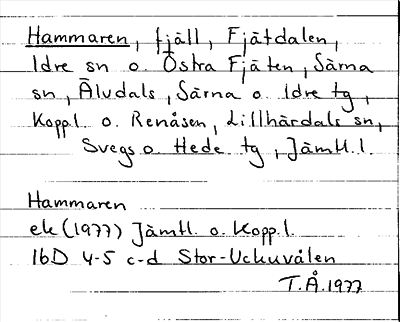 Hammaren, fjäll, Fjätdalen,
Idre sn o. Östra Fjäten, Särna
sn, Älvdals, Särna o. Idre tg,
Koppl. o. Renåsen, Lillhärdals sn,
Svegs o. Hede tg, Jämtl. l.
Hammaren
ek (1977) Jämtl. o. Kopp. l.
16D 4-5 c-d Stor-Uckuvålen
T.Å. 1977